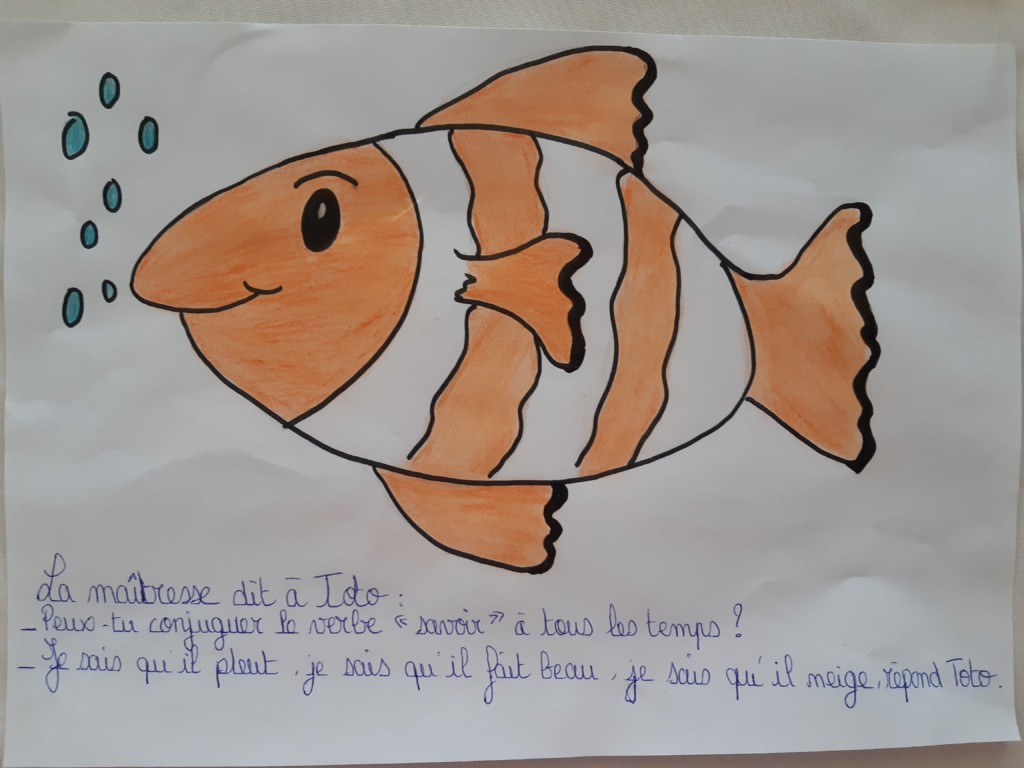 La maîtresse dit à Toto :
_ Peux-tu conjuguer le verbe " savoir " à tous les temps ?
_ Je sais qu'il pleut, je sais qu'il fait beau, je sais qu'il neige, répond Toto.